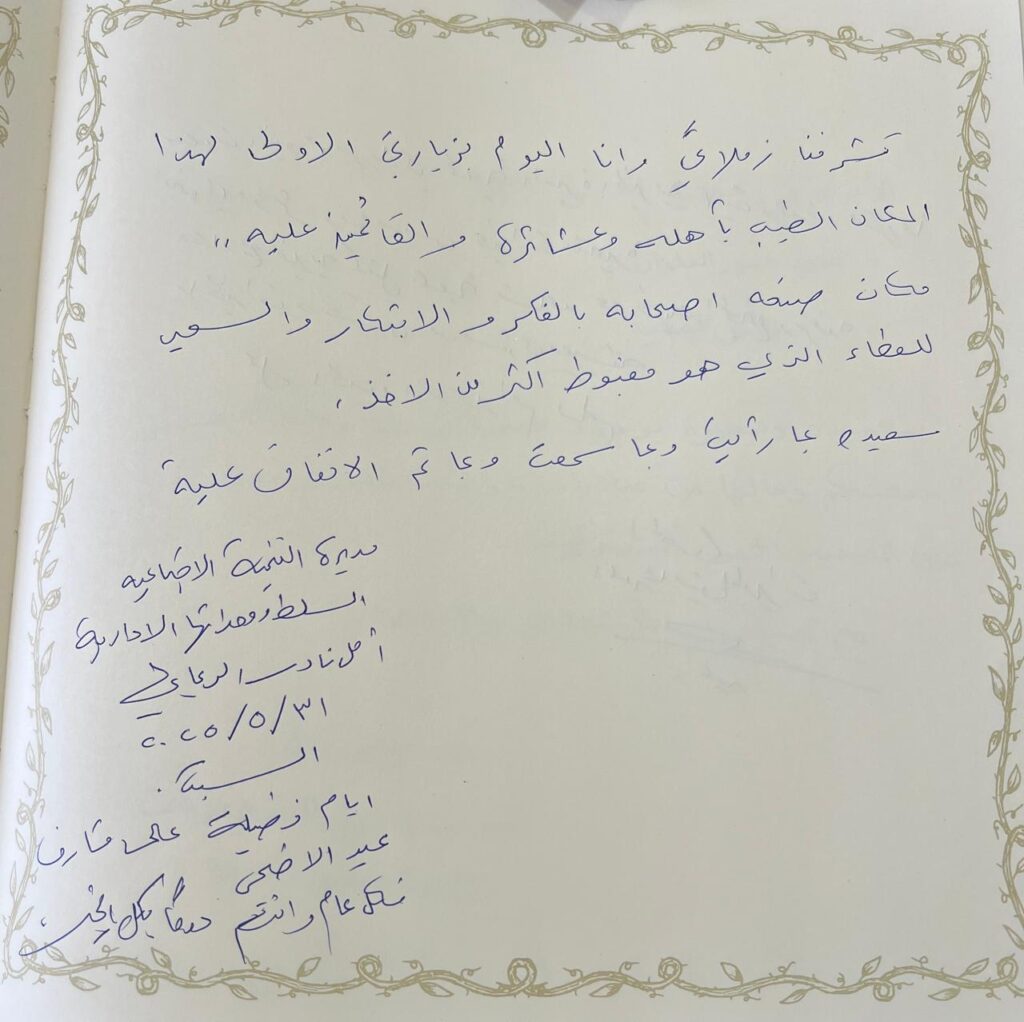 تشرفنا زملائي وانا اليوم بزيارتي الاولى لهذا
المكان الطيب بأهله وعشائره والقائمين عليه ،،
مكان صنعه اصحابه بالفكر و الابتكار والسعي
للعطاء الذي هو مغبوط اكثر من الاخذ .
سعيدة بما رأيت وبما سمعت وبما تم الاتفاق علية
مديرة التنمية الاجتماعيه
السلط وقصباتها الادارية
أمل نادر
٢٠٢٥/٥/٣١
السبت .
ايام فضيلة على مشارف
عيد الاضحى
فكل عام وانتم دوماً بكل الخير